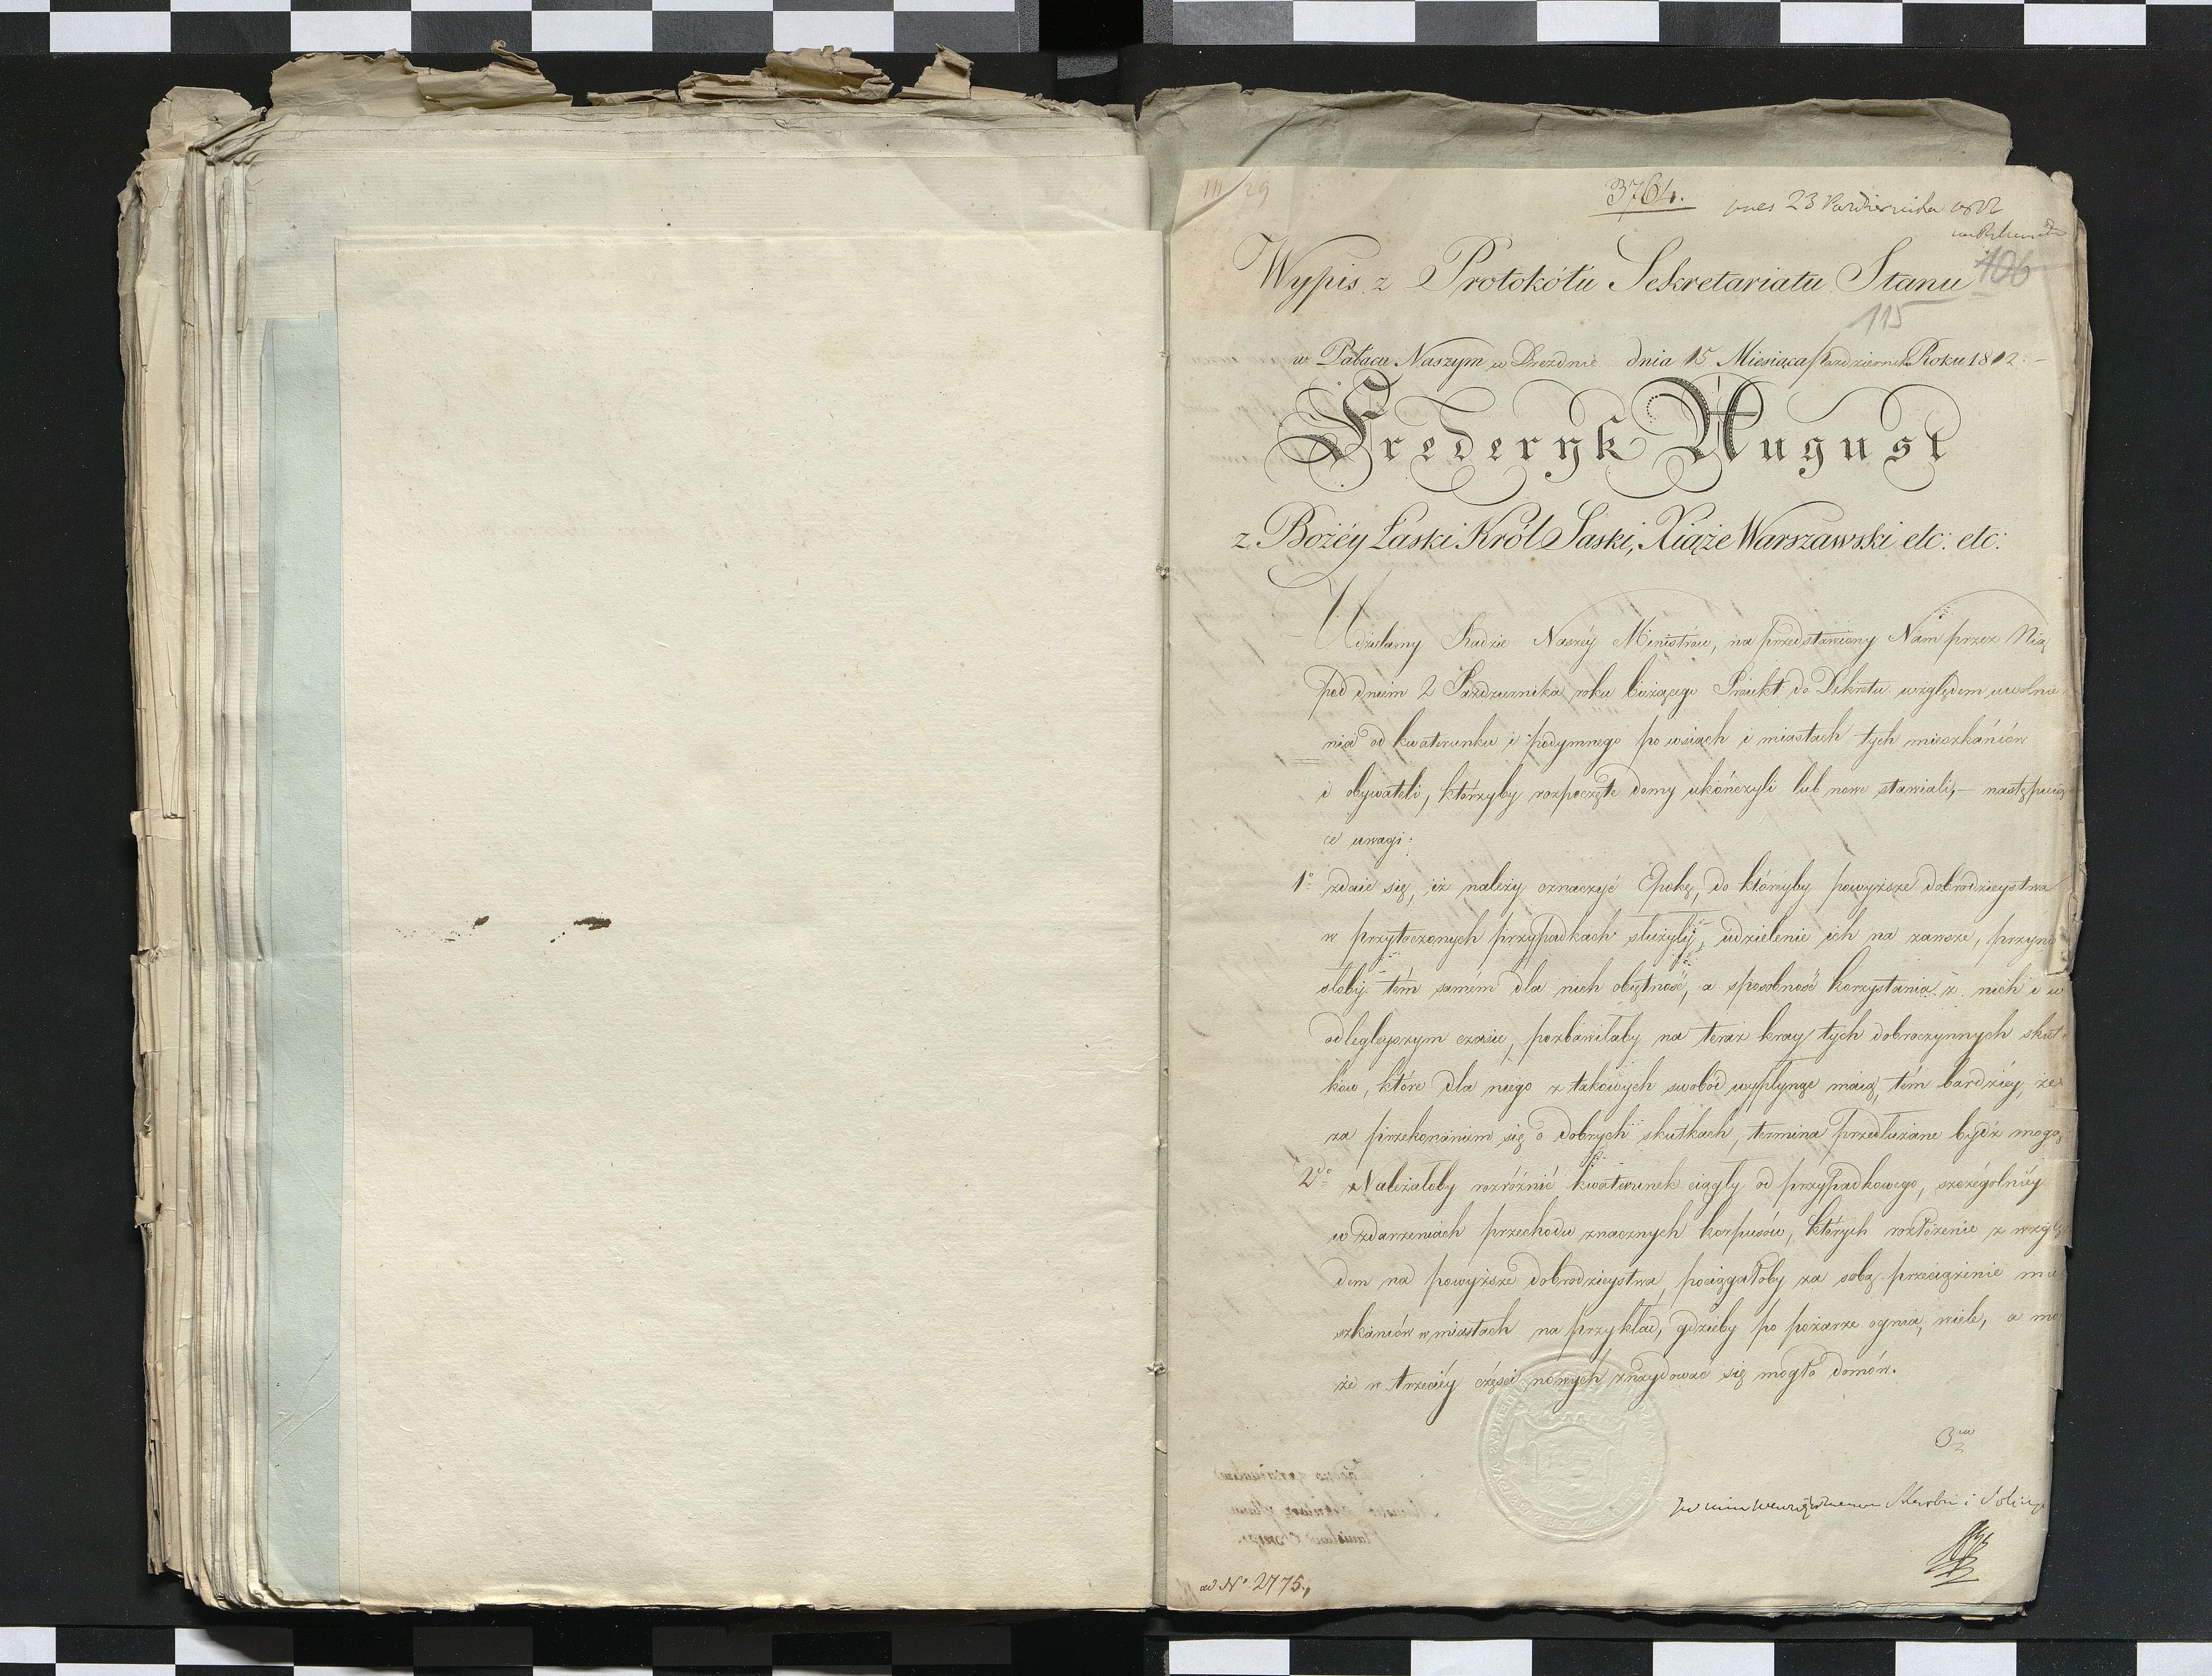 III 29
3764.
23 Października
106
Wypis z Protokółu Sekretariatu Stanu
115
w Pałacu Naszym w Dreźnie dnia 15 Miesiąca Października Roku 1812.
Frederyk August
z Bożéy Łaski Król Saski, Xiąże Warszawski etc: etc:
Udzielamy Radzie Naszéy Ministrów, na przedstawiony Nam przez Nią
pod dniem 2 Października roku bieżącego Proiekt do Dekretu względem uwolnie
nia od kwaterunku i podymnego po wsiach i miastach tych mieszkańców
i obywateli, którzyby rozpoczęte domy ukończyli lub nowe stawiali, — następuią
ce uwagi:
1° zdaie się, iż należy oznaczyć Epokę, do któréyby powyższe dobrodzieystwa
w przytoczonych przypadkach służyły, udzielenie ich na zawsze, przynio
słoby tém samém dla nich obiętność, a sposobność korzystania z nich i w
odległeyszym czasie, pozbawiłaby na teraz kray tych dobroczynnych skut
ków, które dla niego z takowych swobód wypłynąć maią, tém bardziéy, że
za przekonaniem się o dobrych skutkach, termina przedłużane bydź mogą
2do Należałoby rozróżnić kwaterunek ciągły od przypadkowego, szczególniéy
w zdarzeniach przechodu znacznych korpusów, których rozłożenie z wzglę
dem na powyższe dobrodzieystwa, pociągałoby za sobą przeciążenie mie
szkańców w miastach na przykład, gdzieby po pożarze ognia, wiele, a mo
że w trzeciéy części nowych znaydować się mogło domów.
3io
Skarbu i Policyi
ad N° 2775.